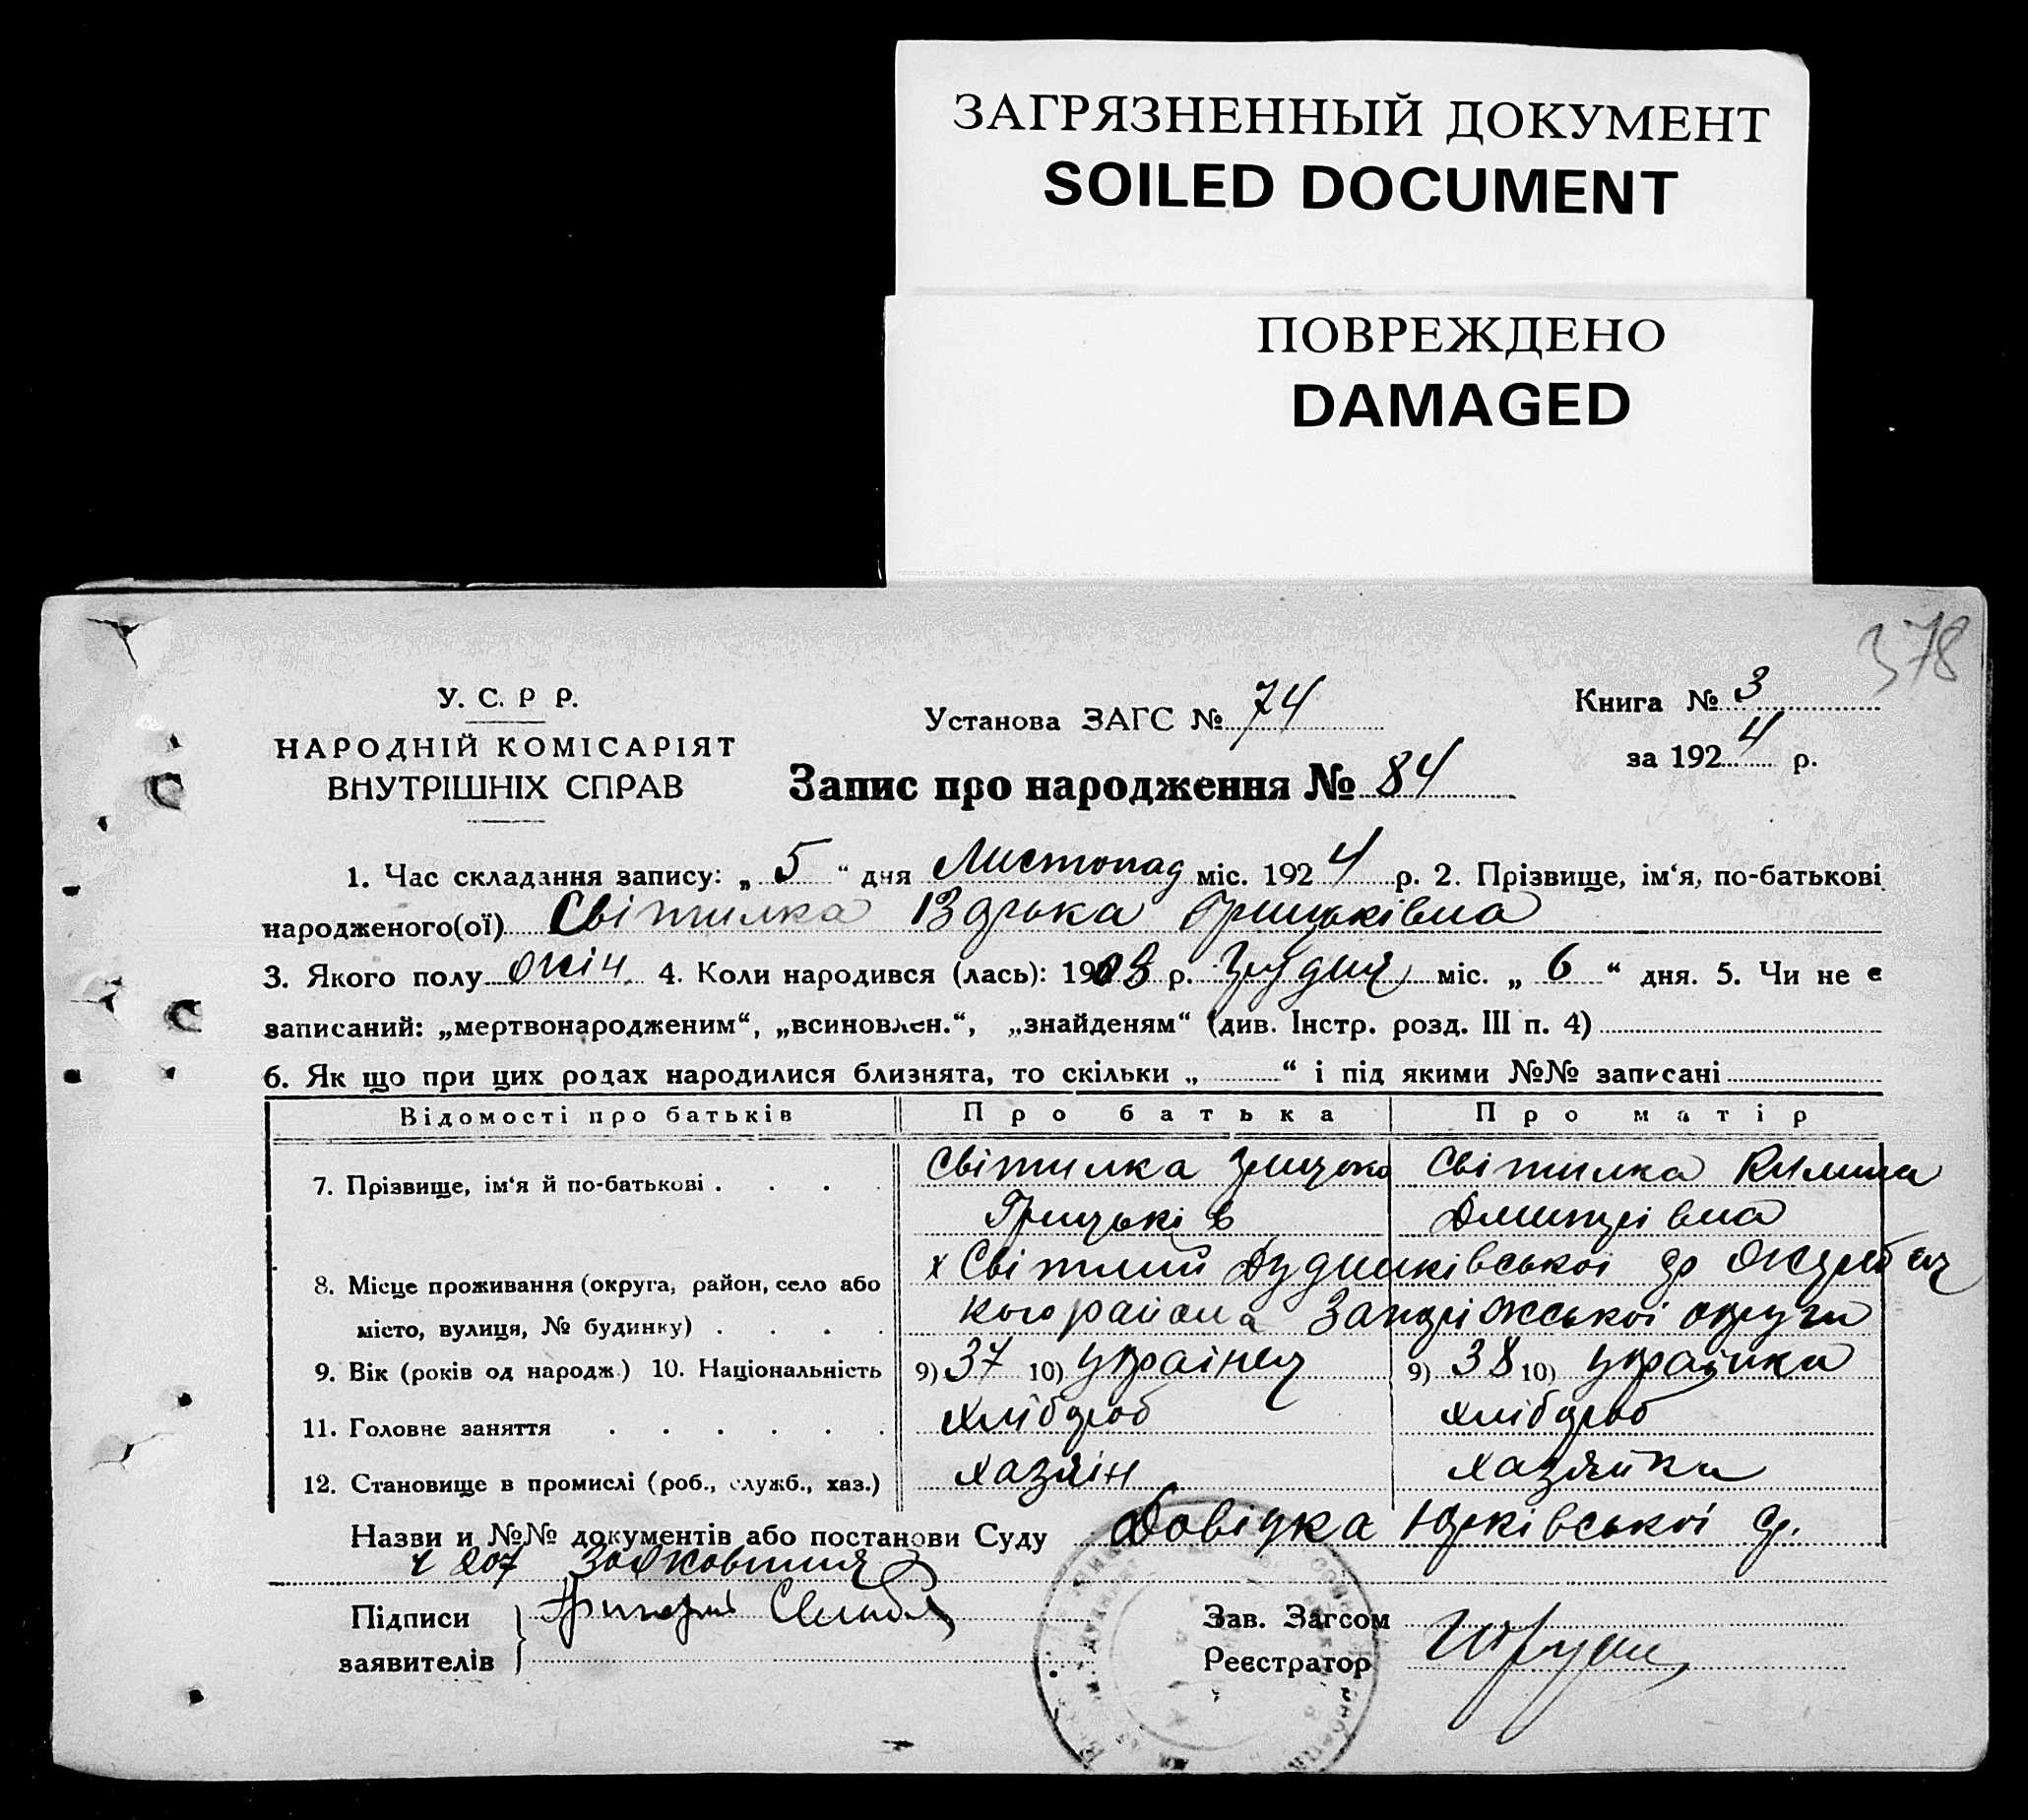 ЗАГРЯЗНЕННЫЙ ДОКУМЕНТ
SOILED DOCUMENT
ПОВРЕЖДЕНО
DAMAGED
378
У. С. Р Р.
НАРОДНІЙ КОМІСАРІЯТ
ВНУТРІШНІХ СПРАВ
Установа ЗАГС № 74
Книга № 3
за 1924 р.
Запис про народження № 84
1. Час складання запису: „ 5 “ дня Листопад міс. 1924 р. 2. Прізвище, ім‘я, по-батькові
народженого(ої) Світилка Грицьківна
3. Якого полу жін. 4. Коли народився (лась): 19 р. Грудня міс. „ 6 “ дня. 5. Чи не є
записаний: „мертвонародженим“, „всиновлен.“, „знайденям“ (див. Інстр. розд. III п. 4)
6. Як що при цих родах народилися близнята, то скільки „ “ і під якими №№ записані
Відомості про батьків Про батька Про матір
7. Прізвище, ім‘я й по-батькові . . . . Світилка Грицько Світилка
Грицьків Дмитрівна
8. Місце проживання (округа, район, село або
місто, вулиця, № будинку) . . . . кого района Запоріжської округи
9. Вік (років од народж.) 10. Національність 9) 37 10) українец 9) 38 10) українка
11. Головне заняття . . . . . . хлібороб хлібороб
12. Становище в промислі (роб., служб., хаз.) хазяін хазяйка
Назви и №№ документів або постанови Суду Довідка Юрківської ср.
ч 207 3 жовтня
Підписи Григорий
заявителів
Зав. Загсом
Реєстратор